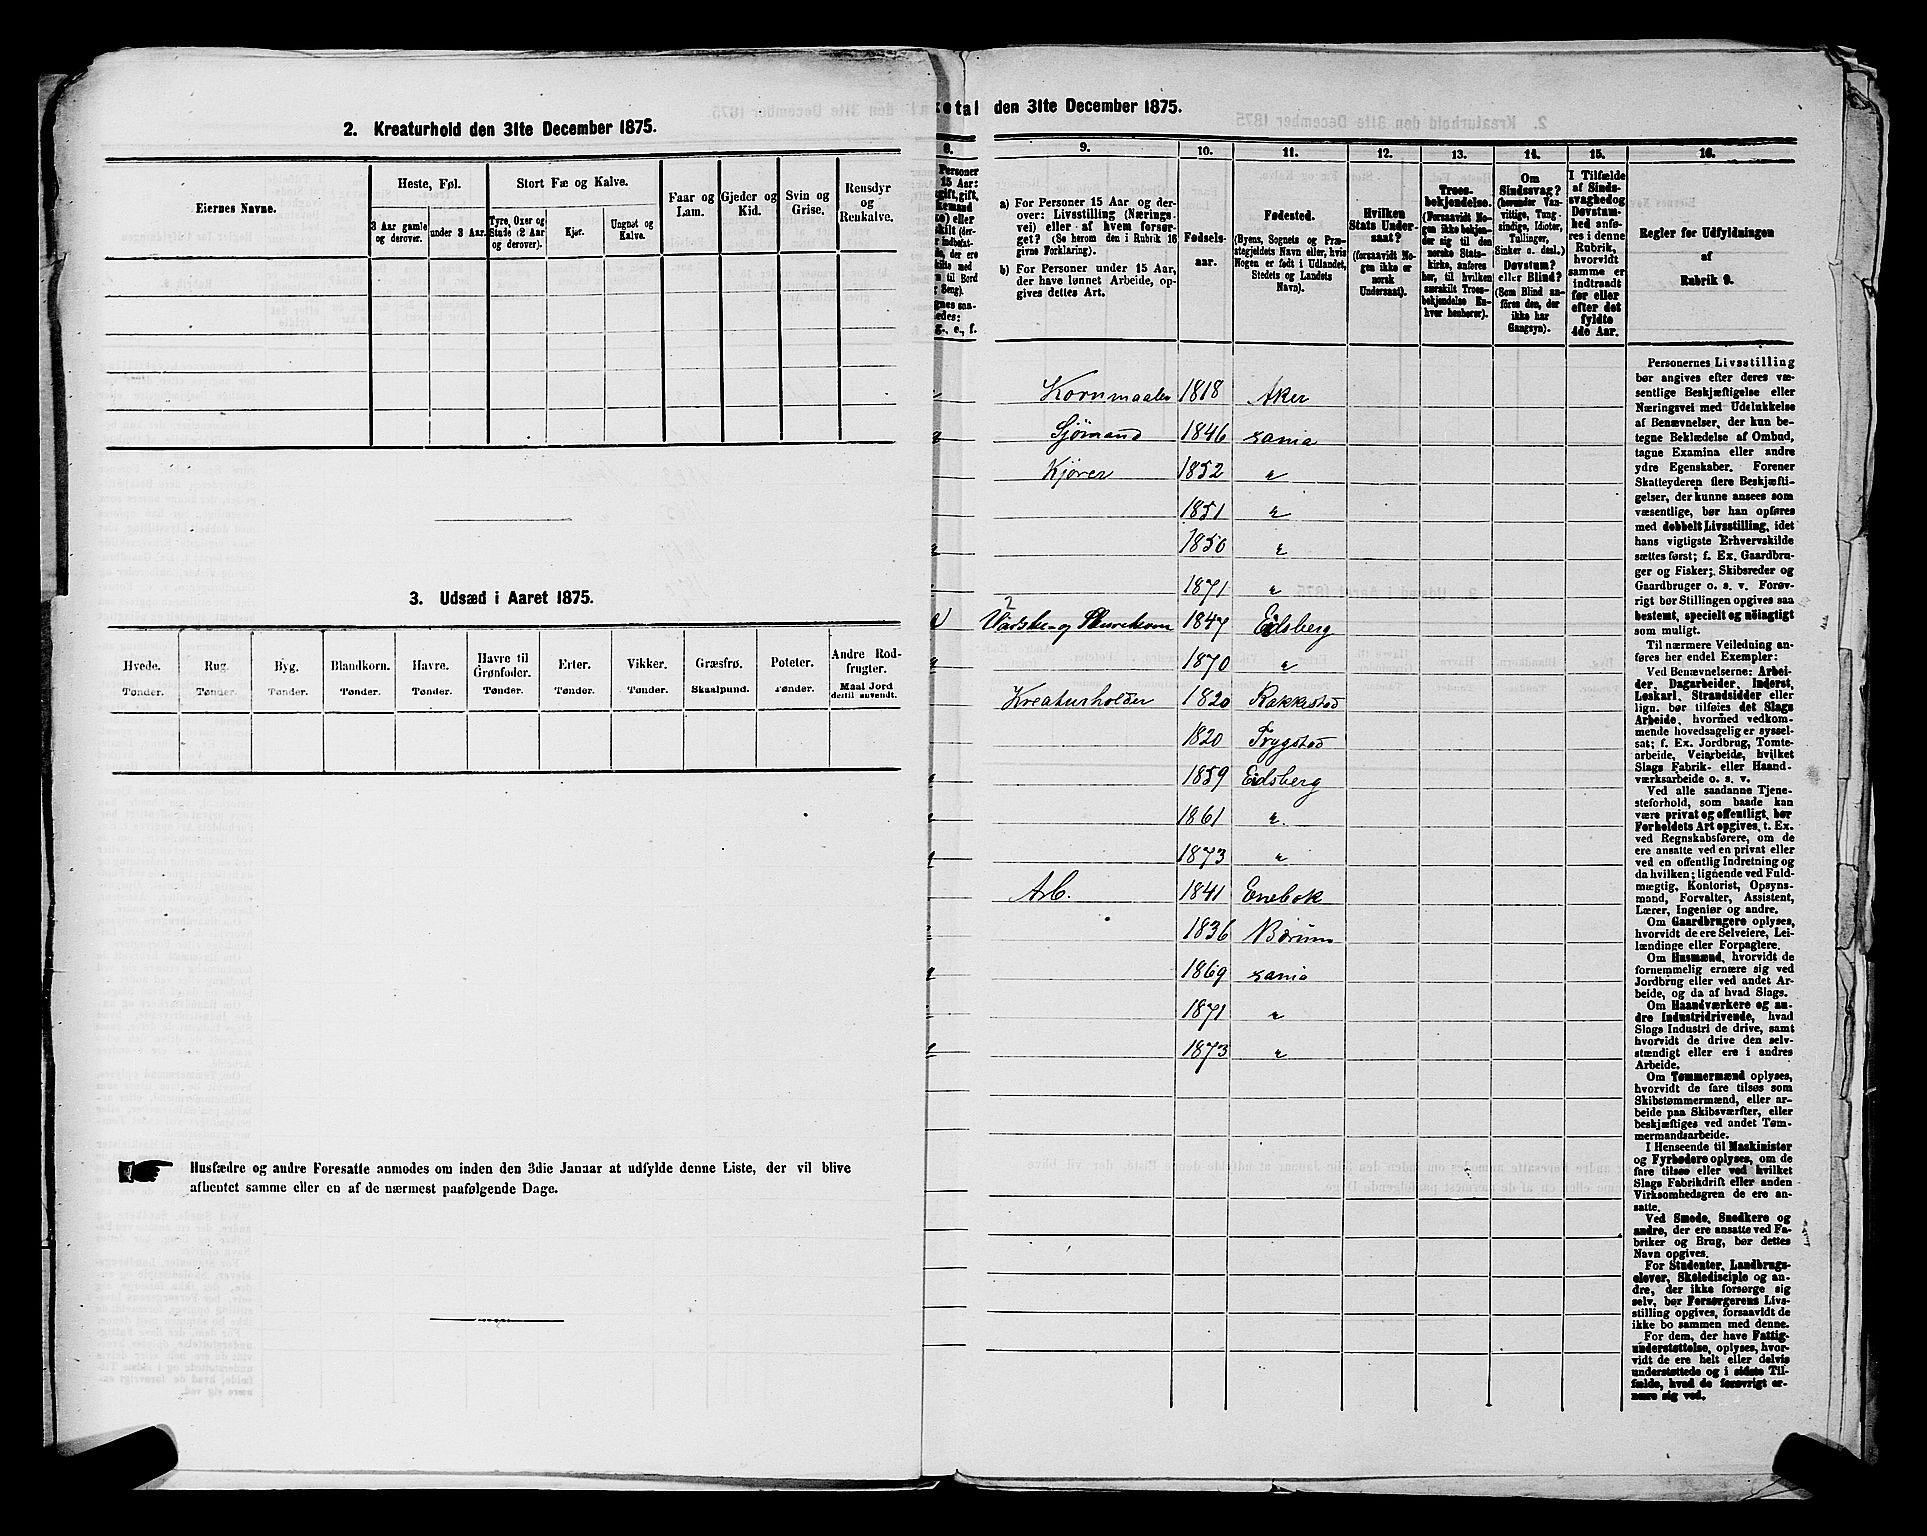 2. Kreaturhold den 31te December 1875.
Eiernes Navne.
Heste, Føl.
3 Aar gamle og derover.
under 3 Aar.
Stort Fæ og Kalve.
Tyre, Oxer og Stude (2 Aar og derover).
Kjør.
Ungnøt og Kalve.
Faar og Lam.
Gjeder og Kid.
Svin og Grise.
Rensdyr og Renkalve.
3. Udsæd i Aaret 1875.
Hvede. Rug. Byg. Blandkorn. Havre. Havre til Grønfoder. Erter. Vikker. Græsfrø. Poteter. Andre Rodfrugter.
Tønder. Tønder. Tønder. Tønder. Tønder. Tønder. Tønder. Tønder. Skaalpund. Tønder. Maal Jord dertil anvendt.
Husfædre og andre Foresatte anmodes om inden den 3die Januar at udfylde denne Liste, der vil blive
afhentet samme eller en af de nærmest paafølgende Dage.
ketal den 31te December 1875.
8. 9. 10. 11. 12. 13. 14. 15. 16.
a) For Personer 15 Aar og derover: Livsstilling (Næringsvei) eller af hvem forsørget? (Se herom den i Rubrik 16 givne Forklaring).
b) For Personer under 15 Aar, der have lønnet Arbeide, opgives dettes Art.
Fødselsaar.
Fødested.
(Byens, Sognets og Præstegjeldets Navn eller, hvis Nogen er født i Udlandet, Stedets og Landets Navn).
Hvilken Stats Undersaat?
(forsaavidt Nogen ikke er norsk Undersaat).
Troesbekjendelse.
(Forsaavidt Nogen ikke bekjender sig til den norske Statskirke, anføres her, til hvilken særskilt Troesbekjendelse Enhver henhører).
Om Sindssvag?
(herunder Vanvittige, Tungsindige, Idioter, Tullinger, Sinker o. desl.)
Døvstum? eller Blind?
(Som Blind anføres den, der ikke har Gangsyn).
I Tilfælde af Sindssvaghed og Døvstumhed anføres i denne Rubrik, hvorvidt samme er indtraadt før eller efter det fyldte 4de Aar.
Regler for Udfyldningen
af
Rubrik 9.
Kornmaaler 1818 Aker
Sjømand 1846 xania
Kjører 1852 "
1851 "
1850 "
1871 "
2
Vaske- og Skurekone 1847 Eidsberg
1870 "
Kreaturholder 1820 Rakkestad
1820 Trygstad
1859 Eidsberg
1861 "
1873 "
Arb. 1841 Enebak
1836 Bærum
1869 xania
1871 "
1873 "
Personernes Livsstilling
bør angives efter deres væ-
sentlige Beskjæftigelse eller
Næringsvei med Udelukkelse
af Benævnelser, der kun be-
tegne Beklædelse af Ombud,
tagne Examina eller andre
ydre Egenskaber. Forener
Skatteyderen flere Beskjæfti-
gelser, der kunne ansees som
væsentlige, bør han opføres
med dobbelt Livsstilling, idet
hans vigtigste Erhvervskilde
sættes først; f. Ex. Gaardbru-
ger og Fisker; Skibsreder og
Gaardbruger o. s. v. Forøv-
rigt bør Stillingen opgives saa
bestemt, specielt og nøiagtigt
som muligt.
Til nærmere Veiledning an-
føres her endel Exempler:
Ved Benævnelserne: Arbei-
der, Dagarbeider, Inderst,
Løskarl, Strandsidder eller
lign. bør tilføies det Slags
Arbeide, hvormed vedkom-
mende hovedsagelig er syssel-
sat; f. Ex. Jordbrug, Tomte-
arbeide, Veiarbeide, hvilket
Slags Fabrik- eller Haand-
værksarbeide o. s. v.
Ved alle saadanne Tjene-
steforhold, som baade kan
være privat og offentligt, bør
Forholdets Art opgives, t. Ex.
ved Regnskabsførere, om de
ere ansatte ved en privat eller
ved en offentlig Indretning og
da hvilken; lignende ved Fuld-
mægtig, Kontorist, Opsyns-
mand, Forvalter, Assistent,
Lærer, Ingeniør og andre.
Om Gaardbrugere oplyses,
hvorvidt de ere Selveiere, Lei-
lændinge eller Forpagtere.
Om Husmænd, hvorvidt de
fornemmelig ernære sig ved
Jordbrug eller ved andet Ar-
beide, og da af hvad Slags.
Om Haandværkere og an-
dre Industridrivende, hvad
Slags Industri de drive, samt
hvorvidt de drive den selv-
stændigt eller ere i andres
Arbeide.
Om Tømmermænd oplyses,
hvorvidt de fare tilsøs som
Skibstømmermænd, eller ar-
beide paa Skibsværfter, eller
beskjæftiges ved andet Tøm-
mermandsarbeide.
I Henseende til Maskinister
og Fyrbødere oplyses, om de
fare tilsøs eller ved hvilket
Slags Fabrikdrift eller anden
Virksomhedsgren de ere an-
satte.
Ved Smede, Snedkere og
andre, der ere ansatte ved Fa-
briker og Brug, bør dettes
Navn opgives.
For Studenter, Landbrugs-
elever, Skoledisciple og an-
dre, der ikke forsørge sig
selv, bør Forsørgerens Livs-
stilling opgives, forsaavidt de
ikke bo sammen med denne.
For dem, der have Fattig-
understøttelse, oplyses, hvor-
vidt de ere helt eller delvis
understøttede og i sidste Til-
fælde, hvad de forøvrigt er-
nære sig ved.